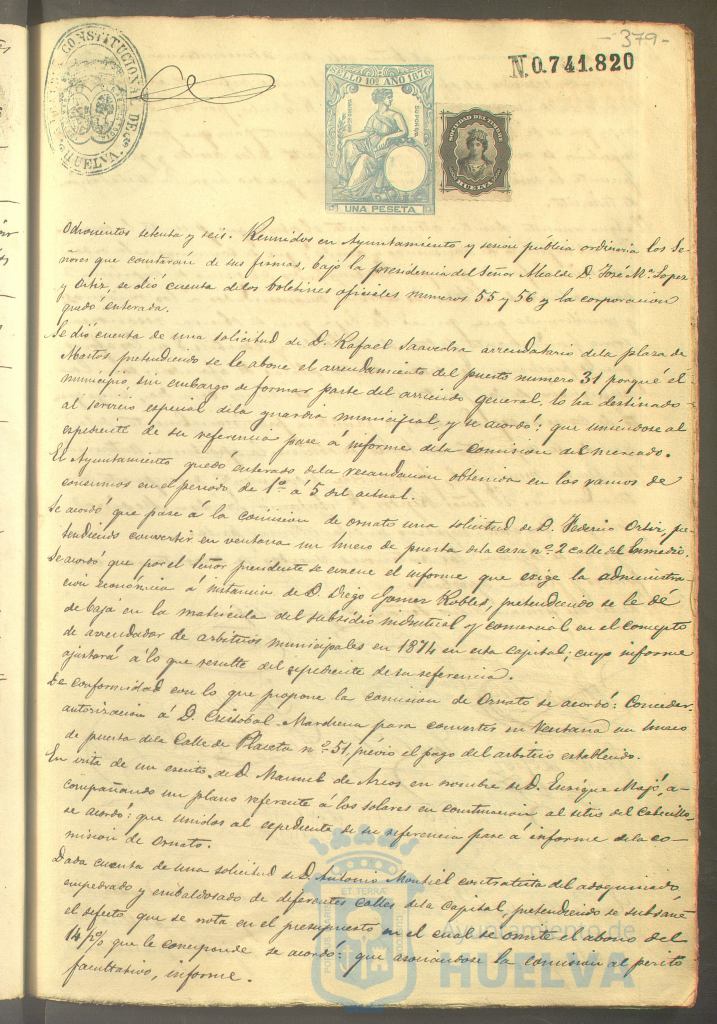 -379-
N.0.741.820
ALCALDIA CONSTITUCIONAL DE HUELVA
SELLO 10º AÑO 1876
UNA PESETA
SOCIEDAD DEL TIMBRE
HUELVA
Ochocientos setenta y seis. Reunidos en Ayuntamiento y sesion pública ordinaria los Se-
ñores que constarán de sus firmas, bajo la presidencia del Señor Alcalde D. José Mª Lopez
y Ortiz, se dió cuenta de los boletines oficiales numeros 55 y 56 y la corporacion
quedó enterada.
Se dió cuenta de una solicitud de D. Rafael Saavedra arrendatario dela plaza de
Abastos, pretendiendo se le abone el arrendamiento del puesto numero 31 porqué el
municipio, sin embargo de formar parte del arriendo general, lo ha destinado
al servicio especial dela guardia municipal, y se acordó: que uniendose al
espediente de su referencia pase á informe dela comision del mercado.
El Ayuntamiento quedó enterado dela recaudacion obtenida en los ramos de
consumos en el periodo de 1º á 5 del actual.
Se acordó que pase á la comision de ornato una solicitud de D. Federico Ortiz, pre-
tendiendo convertir en ventana un hueco de puerta dela casa nº 2 calle del Enmedio.
Se acordó que por el Señor presidente se evacue el informe que exige la administra-
cion económica á instancia de D. Diego Gomez Robles, pretendiendo se le dé
de baja en la matricula del subsidio industrial y comercial en el concepto
de arrendador de arbitrios municipales en 1874 en esta capital; cuyo informe
ajustará á lo que resulte del espediente de su referencia.
De conformidad con lo que propone la comision de Ornato se acordó: Conceder
autorizacion á D. Cristobal Mardiena para convertir en Ventana un hueco
de puerta dela Calle de Placeta nº 51, previo el pago del arbitrio establecido.
En vista de un escrito de D. Manuel de Arcos en nombre de D. Enrique Majó, a-
compañando un plano referente á los solares en construccion al sitio del Cabecillo
se acordó: que unidos al espediente de su referencia pase á informe dela co-
mision de Ornato.
Dada cuenta de una solicitud de D. Antonio Montiel contratista del adoquinado,
empedrado y embaldosado de diferentes calles dela Capital, pretendiendo se subsane
el defecto que se nota en el presupuesto en el cual se omite el abono del
14 p% que le corresponde se acordó: que asociandose la comision al perito
facultativo, informe.
Ayuntamiento de
HUELVA